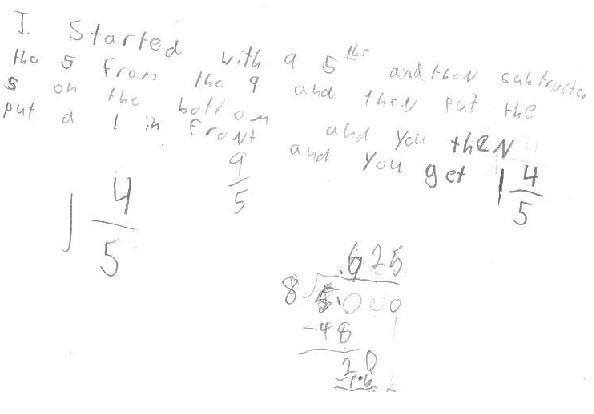 I. Started with 9 5ths and then subtracted
the 5 from the 9 and then put the
5 on the bottom and you then
put a 1 in front and you get 1 4/5
9/5
1 4/5
.625
8 5.000
-48
20